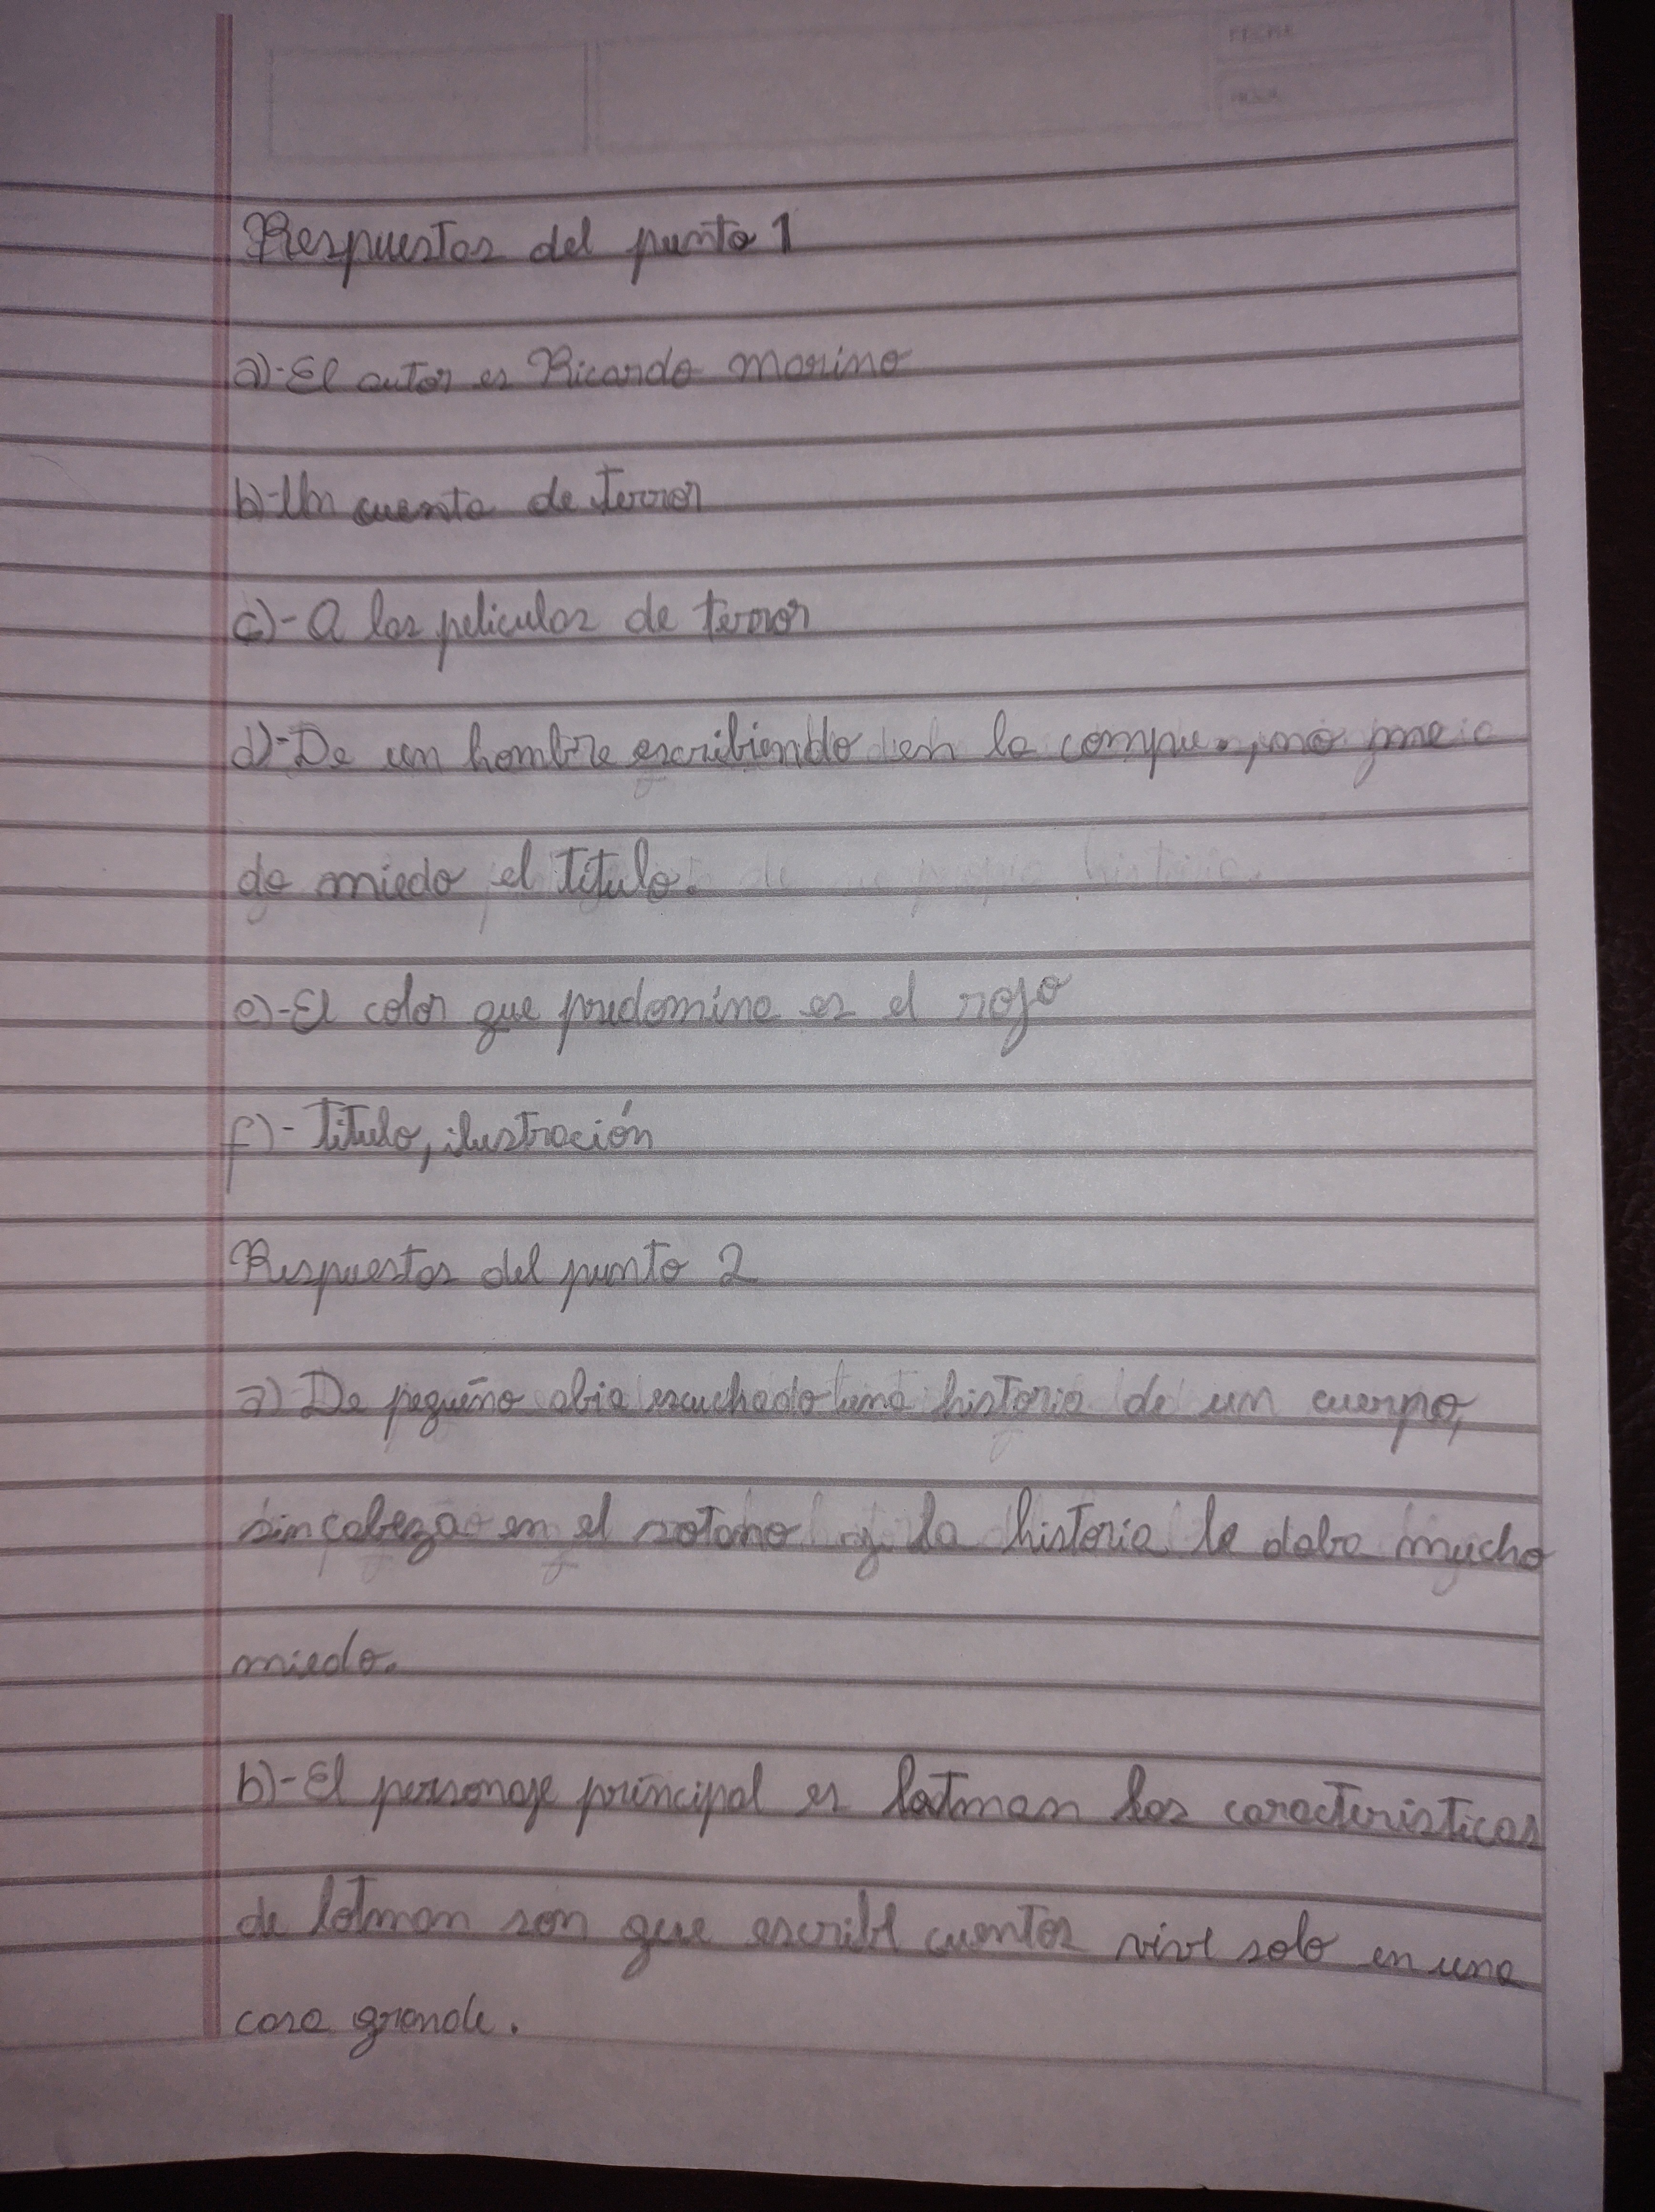 Respuestas del punto 1
a)-El autor es Ricardo marino
b)-Un cuento de terror
c)-A las peliculas de terror
d)-De un hombre escribiendo en la compu., no me
da miedo el titulo.
e)-El color que predomina es el rojo
f)-Titulo, ilustración
Respuestas del punto 2
a) De pequeño abia escuchado una historia de un cuerpo,
sin cabeza en el sotano y la historia le daba mucho
miedo.
b)-El personaje principal es latman las caracteristicas
de latman son que escribe cuentos vive solo en una
casa grande.